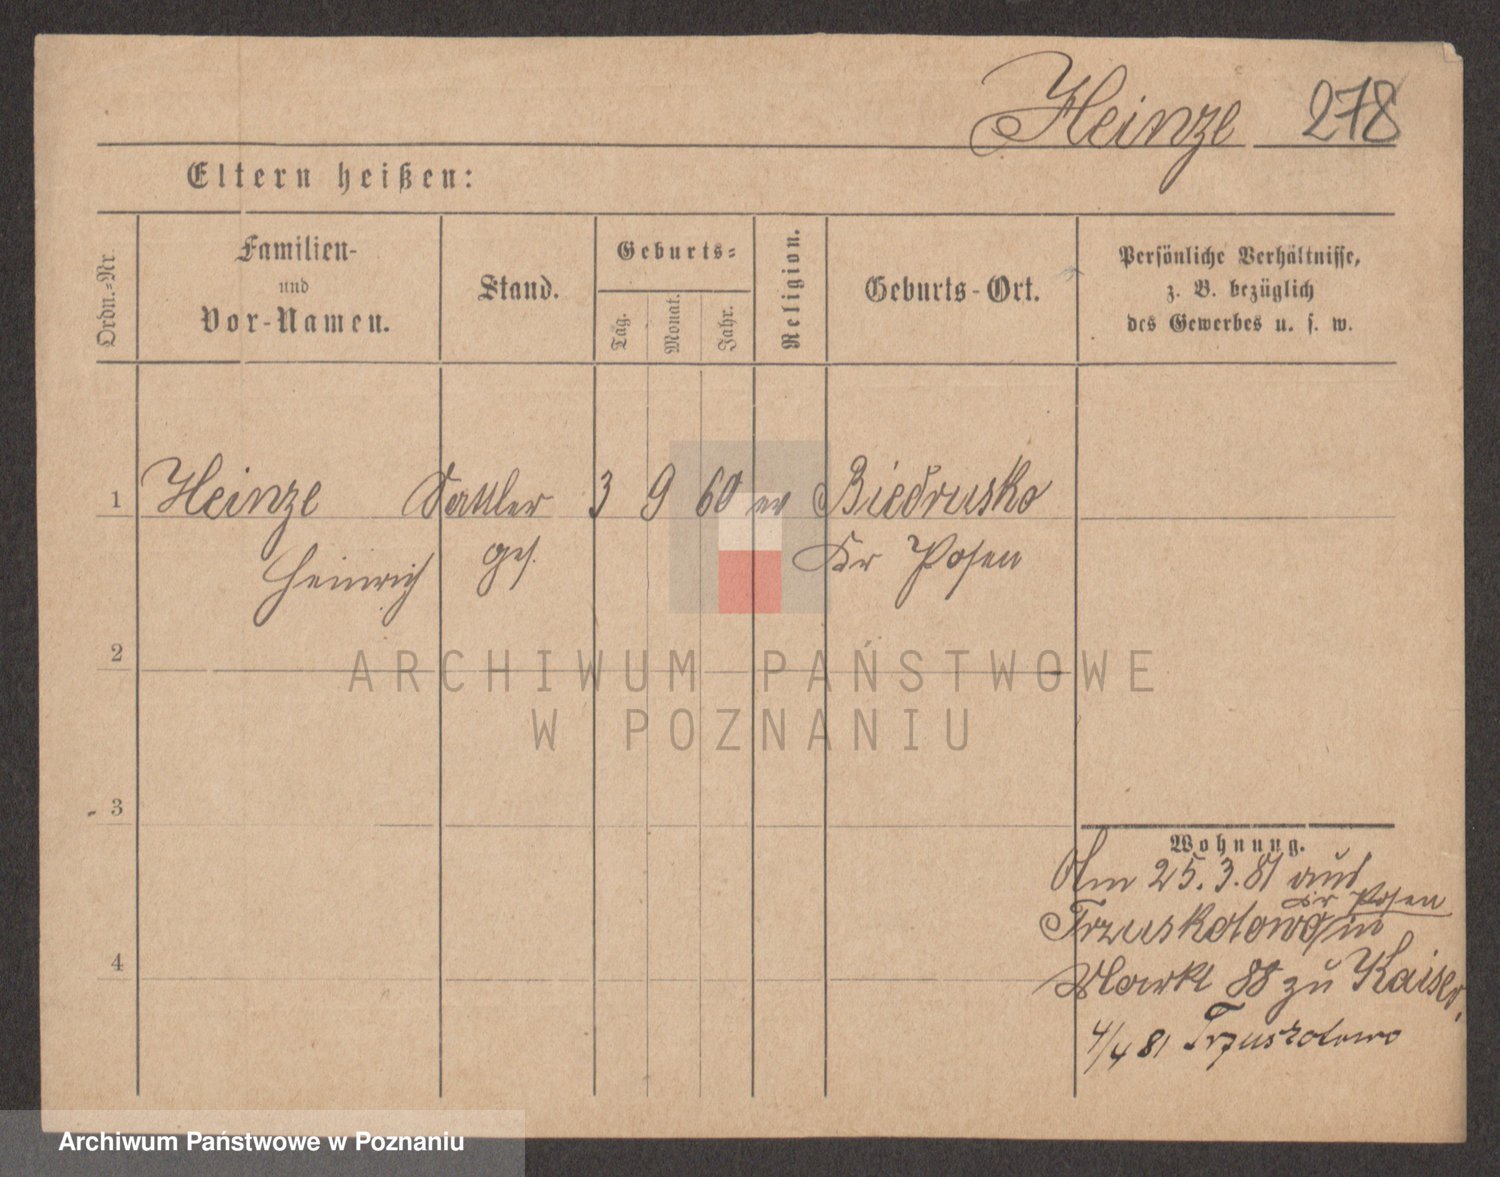 Heinze 278
Eltern heißen:
Ordn.-Nr.
Familien-
und
Vor-Namen.
Stand.
Geburts-
Tag.
Monat.
Jahr.
Religion.
Geburts-Ort.
Persönliche Verhältnisse,
z. B. bezüglich
des Gewerbes u. s. w.
1 Heinze Sattler 3 9 60 ev Biedrusko
Heinrich ges. Kr Posen
2
3
4
Wohnung.
Am 25.3.81 aus
Kr Posen
Trzuskotowo in
Markt 88 zu Kaiser,
4/4 81 Trzuskotowo
ARCHIWUM PAŃSTWOWE
W POZNANIU
Archiwum Państwowe w Poznaniu